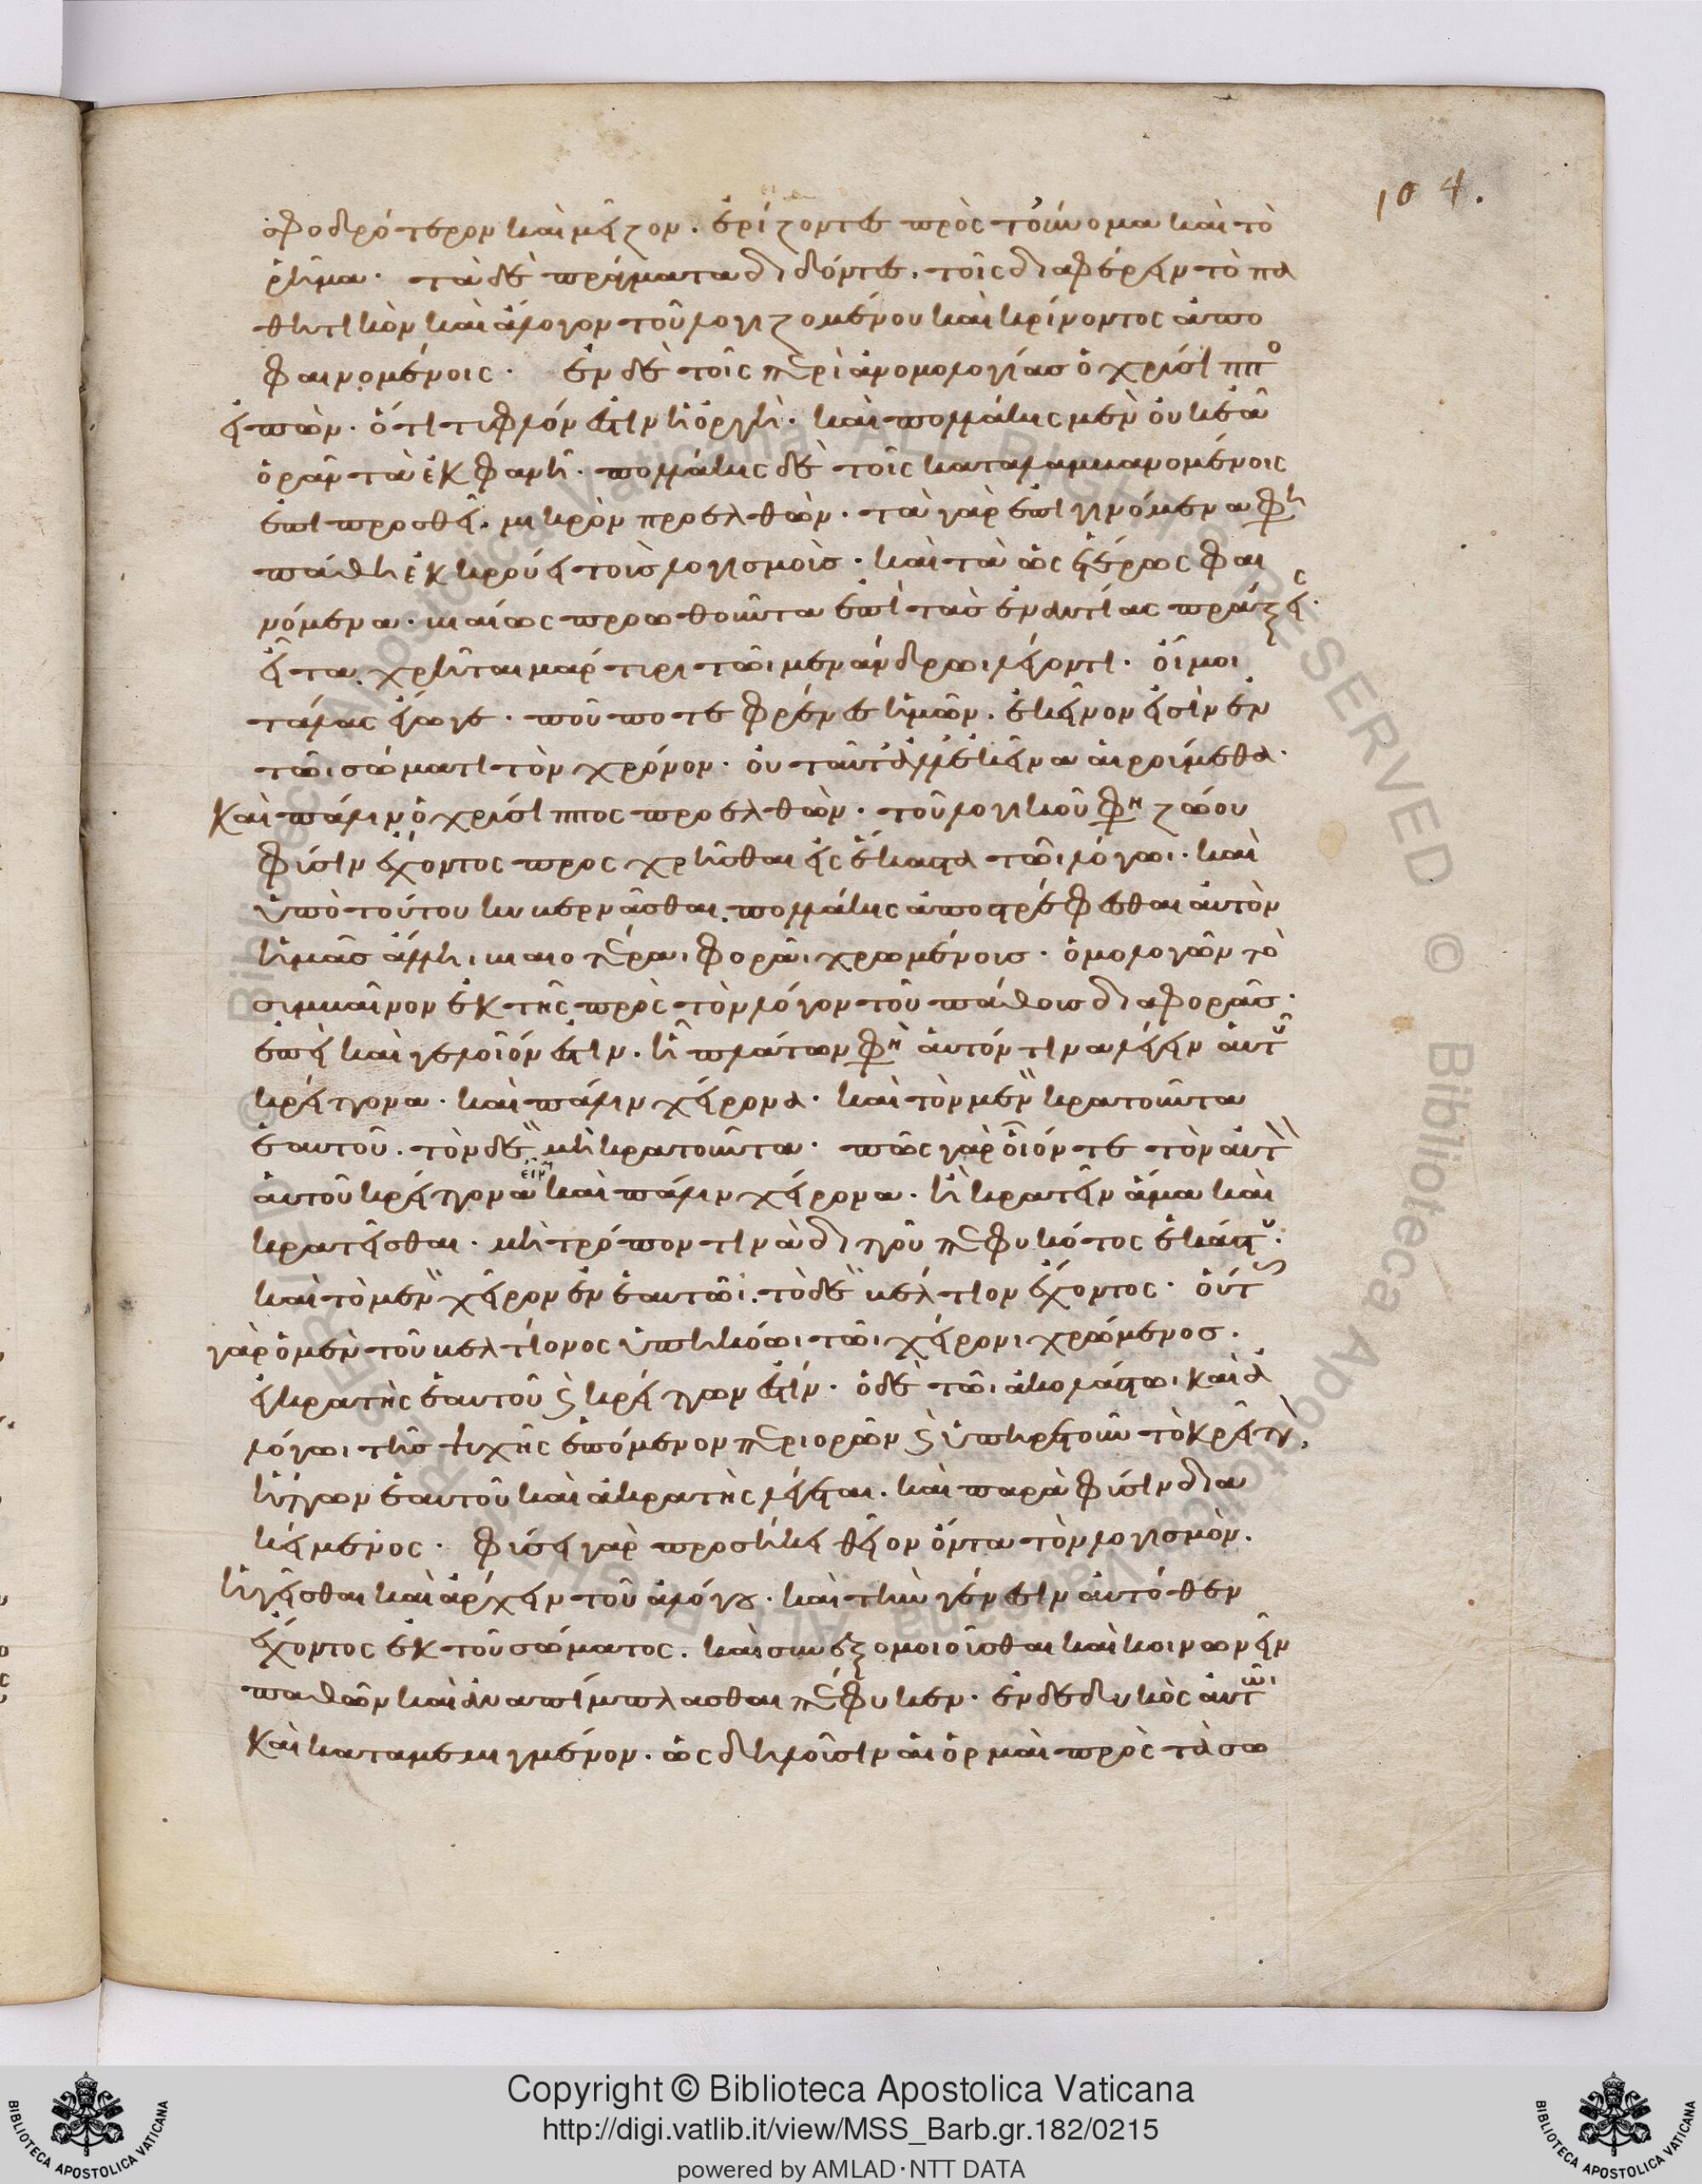 104.
σφοδρότερον καὶ μεῖζον. ἐρίζοντες πρὸς τοὔνομα καὶ τὸ
ῥῆμα· τὰ δὲ πράγματα διδόντες. τοῖς διαφέρειν τὸ πα
θητικὸν καὶ ἄλογον τοῦ λογιζομένου καὶ κρίνοντος ἀπο
φαινομένοις· ἐν δὲ τοῖς περὶ ἀνομολογίας ὁ χρύσιππο
εἰπὼν· ὅτι τυφλόν ἐστιν ἡ ὀργὴ· καὶ πολλάκις μὲν οὐκ ἐᾶ
ὁρᾶν τὰ ἐκφανῆ· πολλάκις δὲ τοῖς καταλαμβανομένοις
ἐπιπροσθεῖ. μικρὸν προελθὼν· τὰ γὰρ ἐπιγινόμενα φη
πάθη ἐκκρούει τοὺς λογισμοὺς· καὶ τὰ ὡς ἑτέρως φαι
νόμενα· βιαίως προωθοῦντα ἐπὶ τὰς ἐναντίας πράξεις·
εἶτα χρῆται μάρτυρι τῶι μενάνδρωι λέγοντι· οἴμοι
τάλας ἔγωγε· ποῦ ποτε φρένες ἡμῶν. ἐκεῖνον εἰσὶν ἐν
τῶι σώματι τὸν χρόνον· οὐ ταῦτ' ἀλλ' ἐκεῖνα αἱρούμεθα·
Καὶ πάλιν ὁ χρύσιππος προελθὼν· τοῦ λογικοῦ φη ζώου
φύσιν ἔχοντος προς χρῆσθαι εἰς ἕκαστα τῶι λόγωι· καὶ
ὑπὸ τούτου κυβερνᾶσθαι πολλάκις ἀποστρέφεσθαι αὐτὸν
ἡμᾶς ἄλληι βιαιοτέραι φορᾶι χρωμένους· ὁμολογῶν τὸ
συμβαῖνον ἐκ τῆς πρὸς τὸν λόγον τοῦ πάθους διαφορᾶς·
ἐπεὶ καὶ γελοῖόν ἐστιν. ἧ πλάτων φη αὐτόν τινα λέγειν αὑτοῦ
κρείττονα· καὶ πάλιν χείρονα· καὶ τὸν μὲν κρατοῦντα
ἑαυτοῦ. τὸν δὲ μὴ κρατοῦντα· πῶς γὰρ οἷόν τε τὸν αὐτὸν
αὑτοῦ κρείττονα εἶναι καὶ πάλιν χείρονα· ἢ κρατεῖν ἅμα καὶ
κρατεῖσθαι· μὴ τρόπον τινὰ διττοῦ πεφυκότος ἑκάστου·
καὶ τὸ μὲν χεῖρον ἐν ἑαυτῶι. τὸ δὲ βέλτιον ἔχοντος· οὕτως
γὰρ ὁ μὲν τοῦ βελτίονος ὑπηκόωι τῶι χείρονι χρώμενος.
ἐγκρατὴς ἑαυτοῦ καὶ κρείττων ἐστίν· ὁ δὲ τῶι ἀκολάστωι καὶ ἀ
λόγωι τῆς ψυχῆς ἑπόμενον περιορῶν καὶ ὑπηρετοῦν τὸ κρεῖττον,
ἥττων ἑαυτοῦ καὶ ἀκρατὴς λέγεται. καὶ παρὰ φύσιν δια
κείμενος· φύσει γὰρ προσήκει θεῖον ὄντα τὸν λογισμὸν.
ἡγεῖσθαι καὶ ἄρχειν τοῦ ἀλόγου· καὶ τὴν γένεσιν αὐτόθεν
ἔχοντος ἐκ τοῦ σώματος. καὶ συνεξομοιοῦσθαι καὶ κοινωνεῖν
παθῶν καὶ ἀναπίμπλασθαι πέφυκεν· ἐνδεδυκὸς αὐτῶι
Καὶ καταμεμιγμένον· ὡς δηλοῦσιν αἱ ὁρμαὶ πρὸς τὰ σω
© Biblioteca Apostolica Vaticana ALL RIGHTS RESERVED
Copyright © Biblioteca Apostolica Vaticana
http://digi.vatlib.it/view/MSS_Barb.gr.182/0215
powered by AMLAD·NTT DATA
BIBLIOTECA APOSTOLICA VATICANA
BIBLIOTECA APOSTOLICA VATICANA